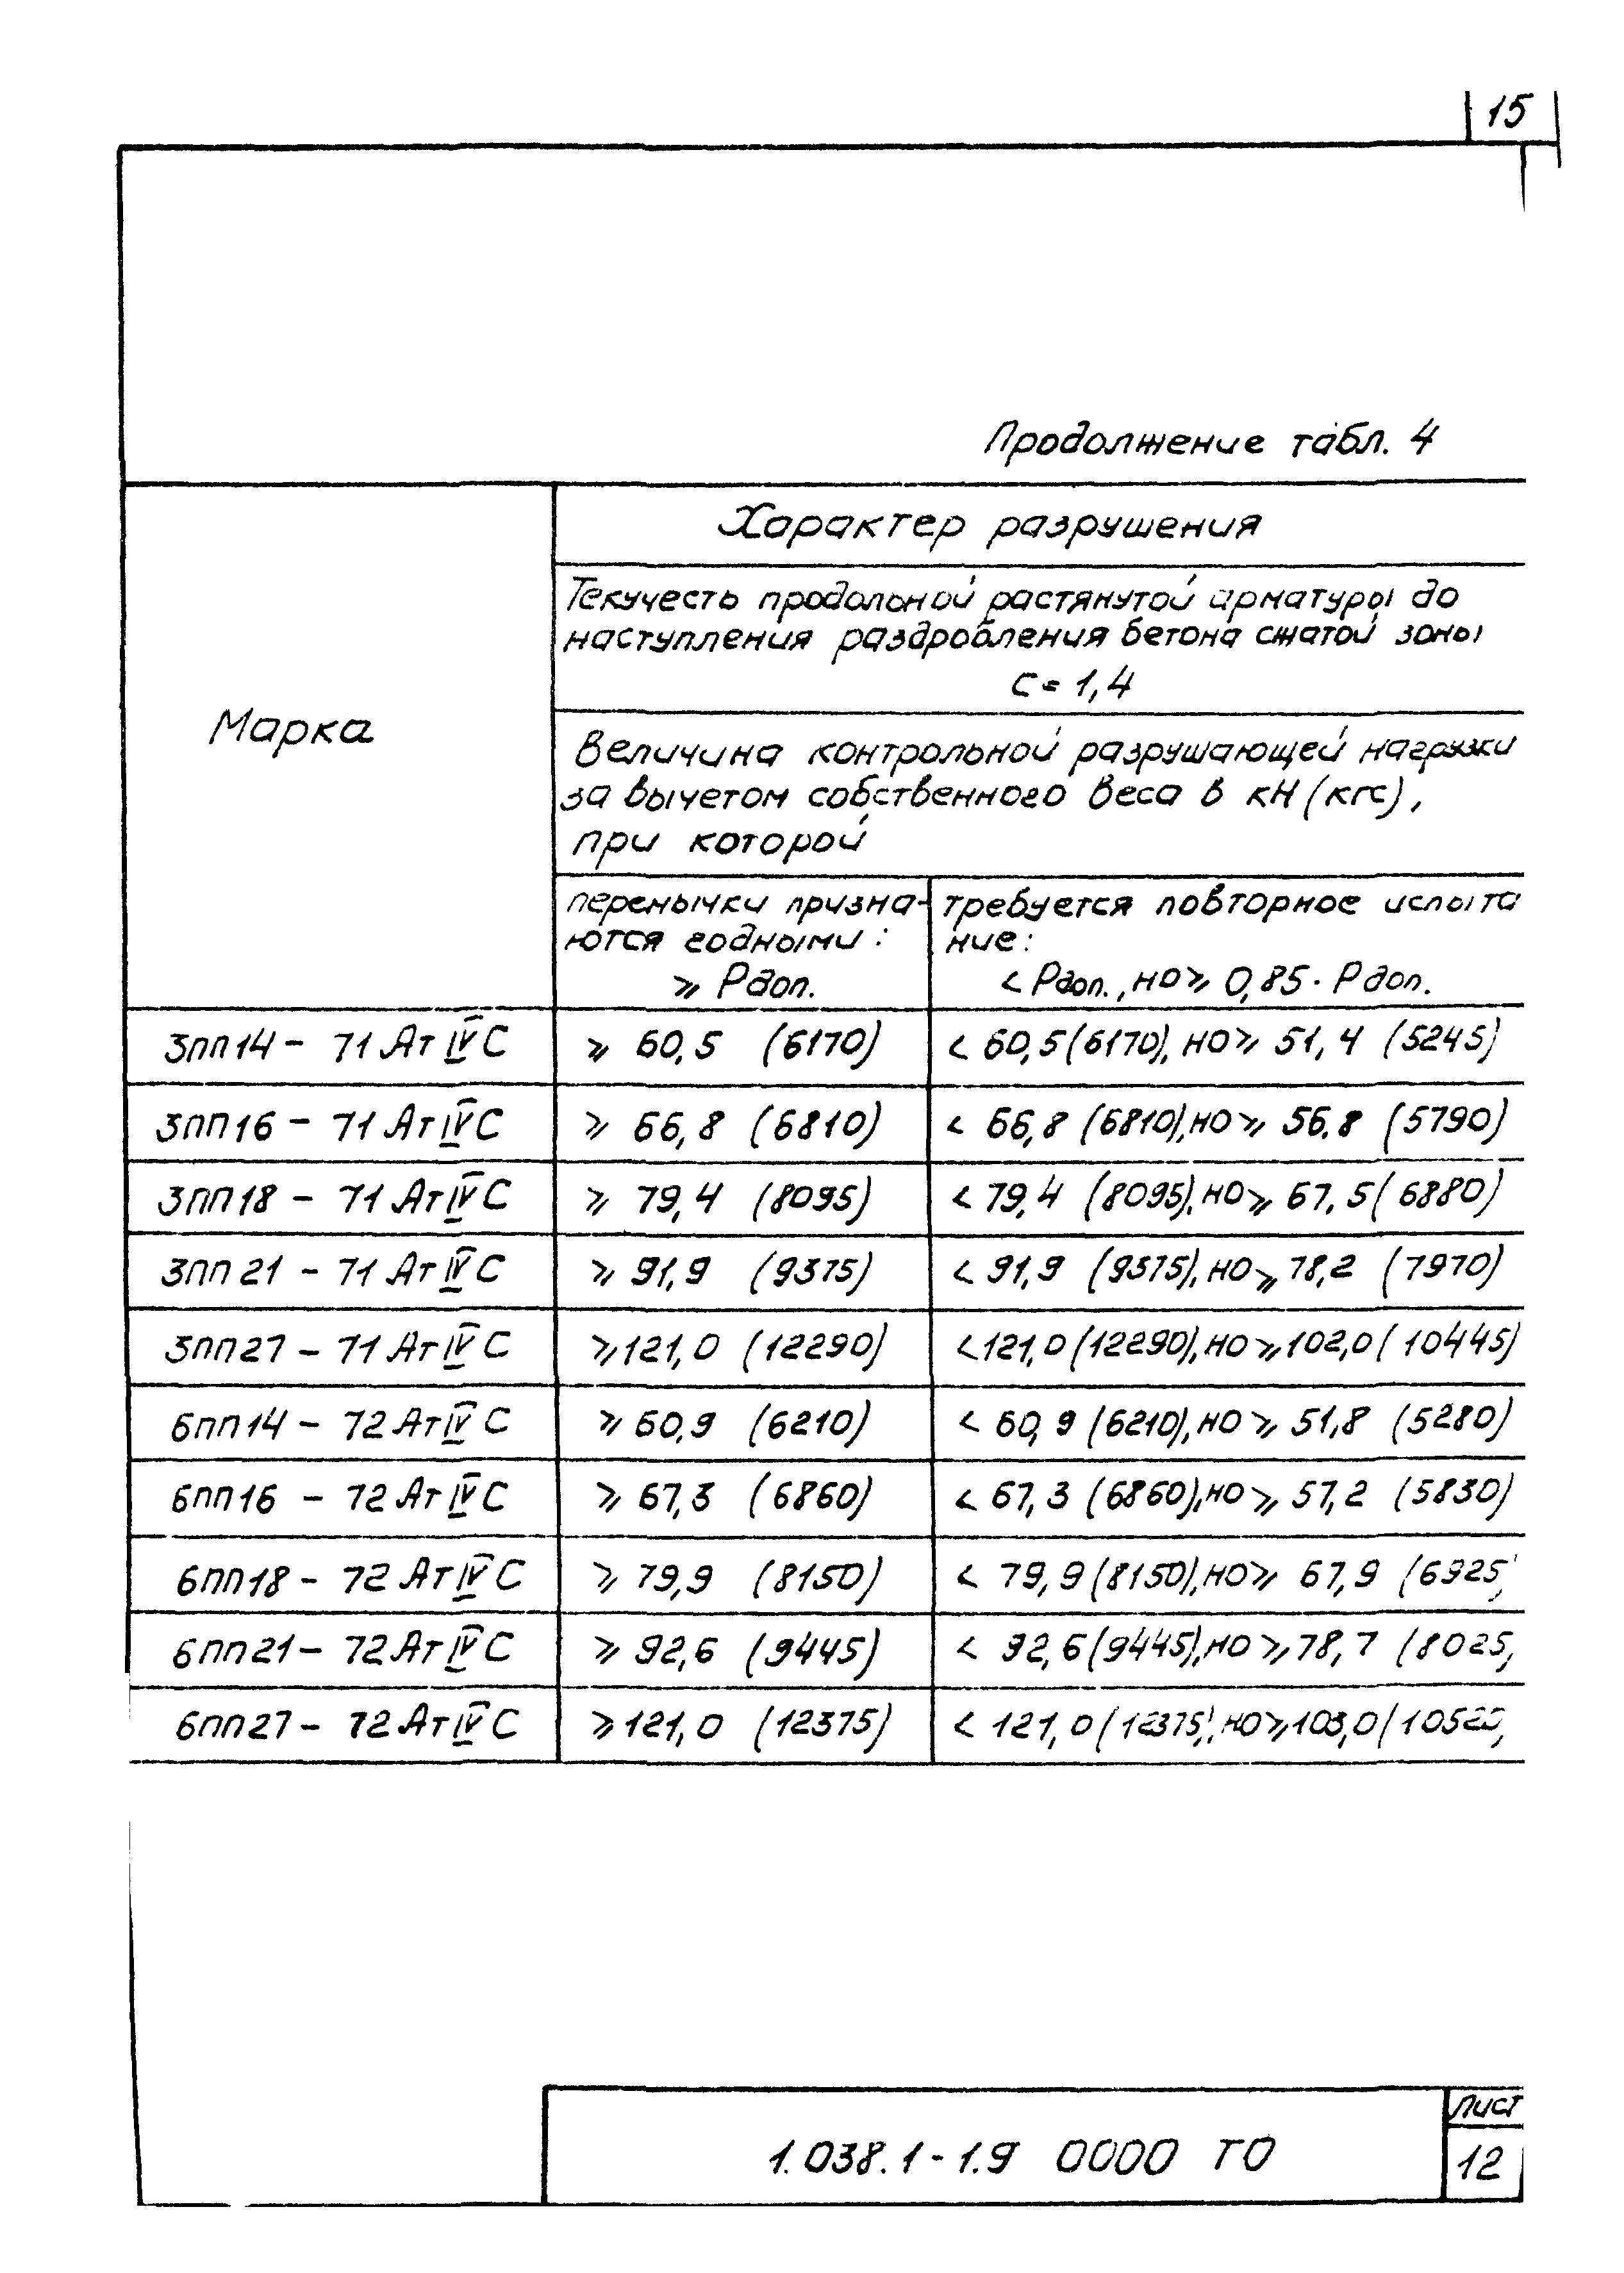 15
Продолжение табл. 4
Марка
Характер разрушения
Текучесть продольной растянутой арматуры до
наступления раздробления бетона сжатой зоны
с = 1,4
Величина контрольной разрушающей нагрузки
за вычетом собственного веса в кН (кгс),
при которой
перемычки призна-
ются годными:
⩾ Рдоп.
требуется повторное испыта
ние:
< Рдоп., но ⩾ 0,85 · Рдоп.
3ПП14 - 71 АтIVС ⩾ 60,5 (6170) < 60,5 (6170), но ⩾ 51,4 (5245)
3ПП16 - 71 АтIVС ⩾ 66,8 (6810) < 66,8 (6810), но ⩾ 56.8 (5790)
3ПП18 - 71 АтIVС ⩾ 79,4 (8095) < 79,4 (8095), но ⩾ 67,5 (6880)
3ПП21 - 71 АтIVС ⩾ 91,9 (9375) < 91,9 (9375), но ⩾ 78,2 (7970)
3ПП27 - 71 АтIVС ⩾ 121,0 (12290) < 121,0 (12290), но ⩾ 102,0 (10445)
6ПП14 - 72 АтIVС ⩾ 60,9 (6210) < 60,9 (6210), но ⩾ 51,8 (5280)
6ПП16 - 72 АтIVС ⩾ 67,3 (6860) < 67,3 (6860), но ⩾ 57,2 (5830)
6ПП18 - 72 АтIVС ⩾ 79,9 (8150) < 79,9 (8150), но ⩾ 67,9 (6925)
6ПП21 - 72 АтIVС ⩾ 92,6 (9445) < 92,6 (9445), но ⩾ 78,7 (8025)
6ПП27 - 72 АтIVС ⩾ 121,0 (12375) < 121,0 (12375), но ⩾ 103,0
1.038.1-1.9 0000 ТО
Лист
12